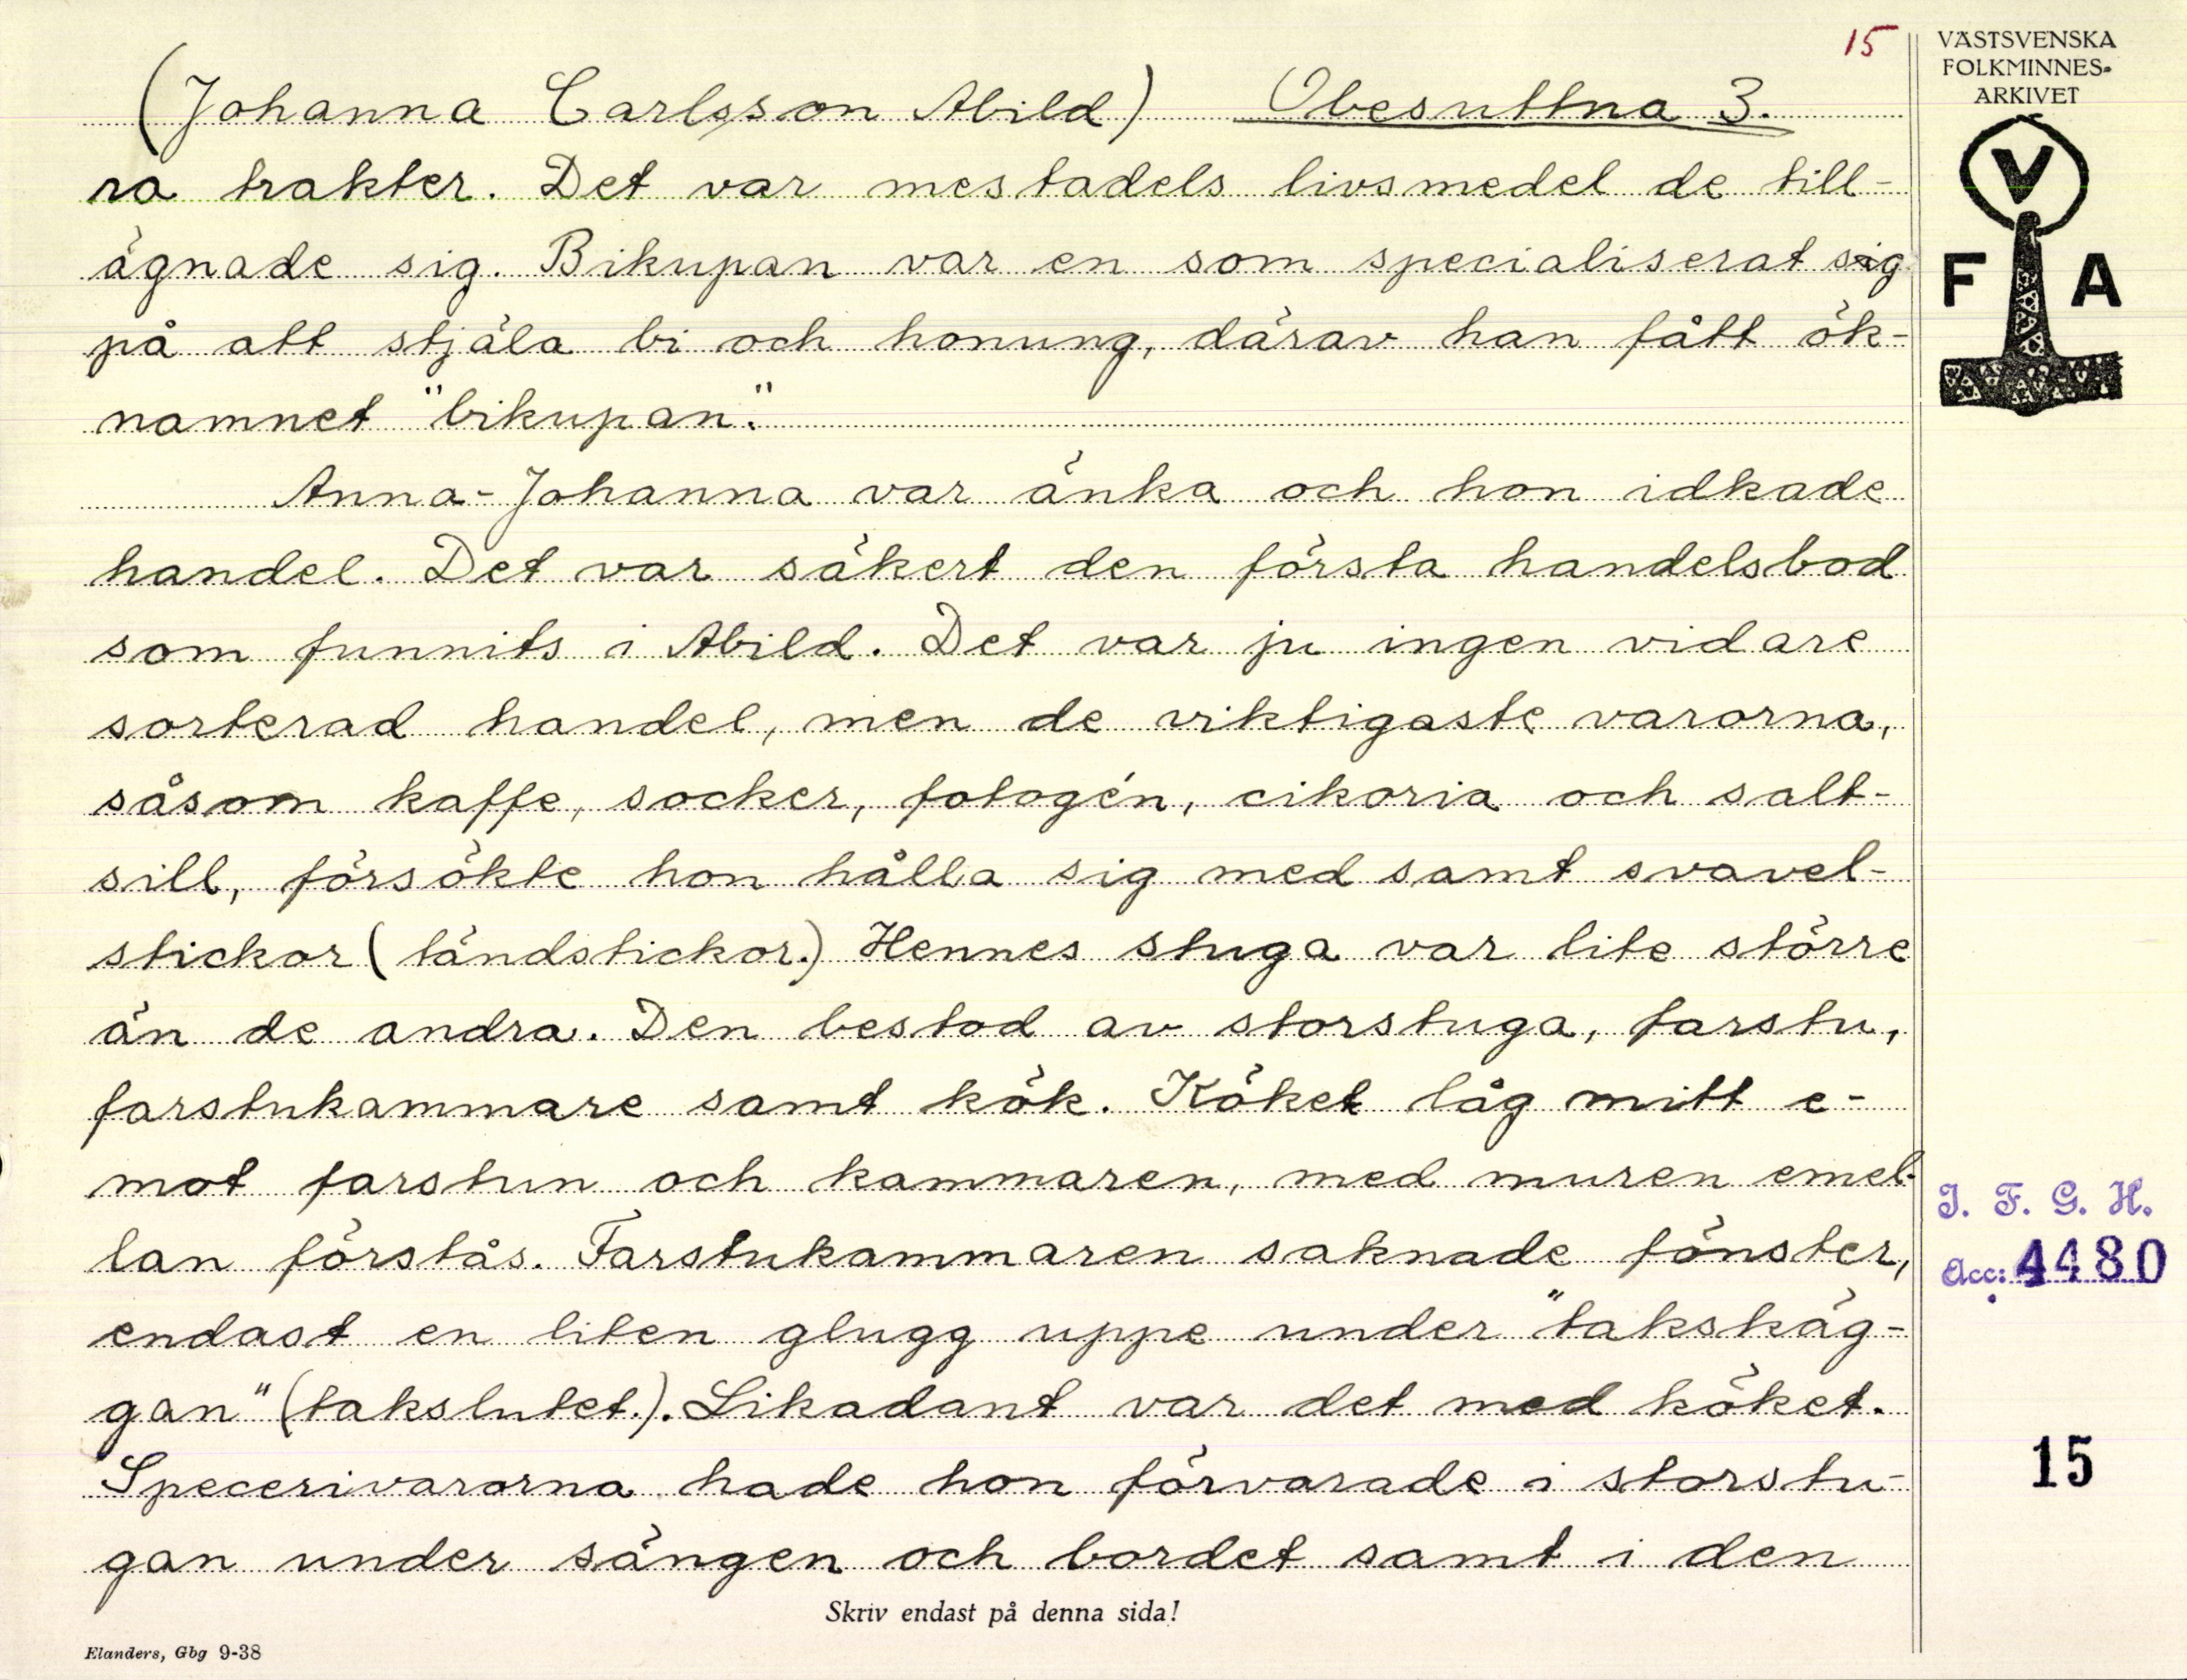 15
VÄSTSVENSKA
FOLKMINNES-
ARKIVET
(Johanna Carlsson Abild) Obesuttna 3.
ra trakter. Det var mestadels livsmedel de till-
ägnade sig. Bikupan var en som specialiserat sig
på att stjäla bi och honung, därav han fått ök-
namnet "bikupan."
Anna-Johanna var änka och hon idkade
handel. Det var säkert den första handelsbod
som funnits i Abild. Det var ju ingen vidare
sorterad handel, men de viktigaste varorna,
såsom kaffe, socker, fotogén, cikoria och salt-
sill, försökte hon hålla sig med samt svavel-
stickor (tändstickor.) Hennes stuga var lite större
än de andra. Den bestod av storstuga, farstu,
farstukammare samt kök. Köket låg mitt e-
mot farstun och kammaren, med muren emel-
lan förstås. Farstukammaren saknade fönster,
endast en liten glugg uppe under "takskäg-
gan" (takslutet.). Likadant var det med köket.
Specerivarorna hade hon förvarade i storstu-
gan under sängen och bordet samt i den
V
F A
I. F. G. H.
Acc: 4480
15
Skriv endast på denna sida!
Elanders, Gbg 9-38